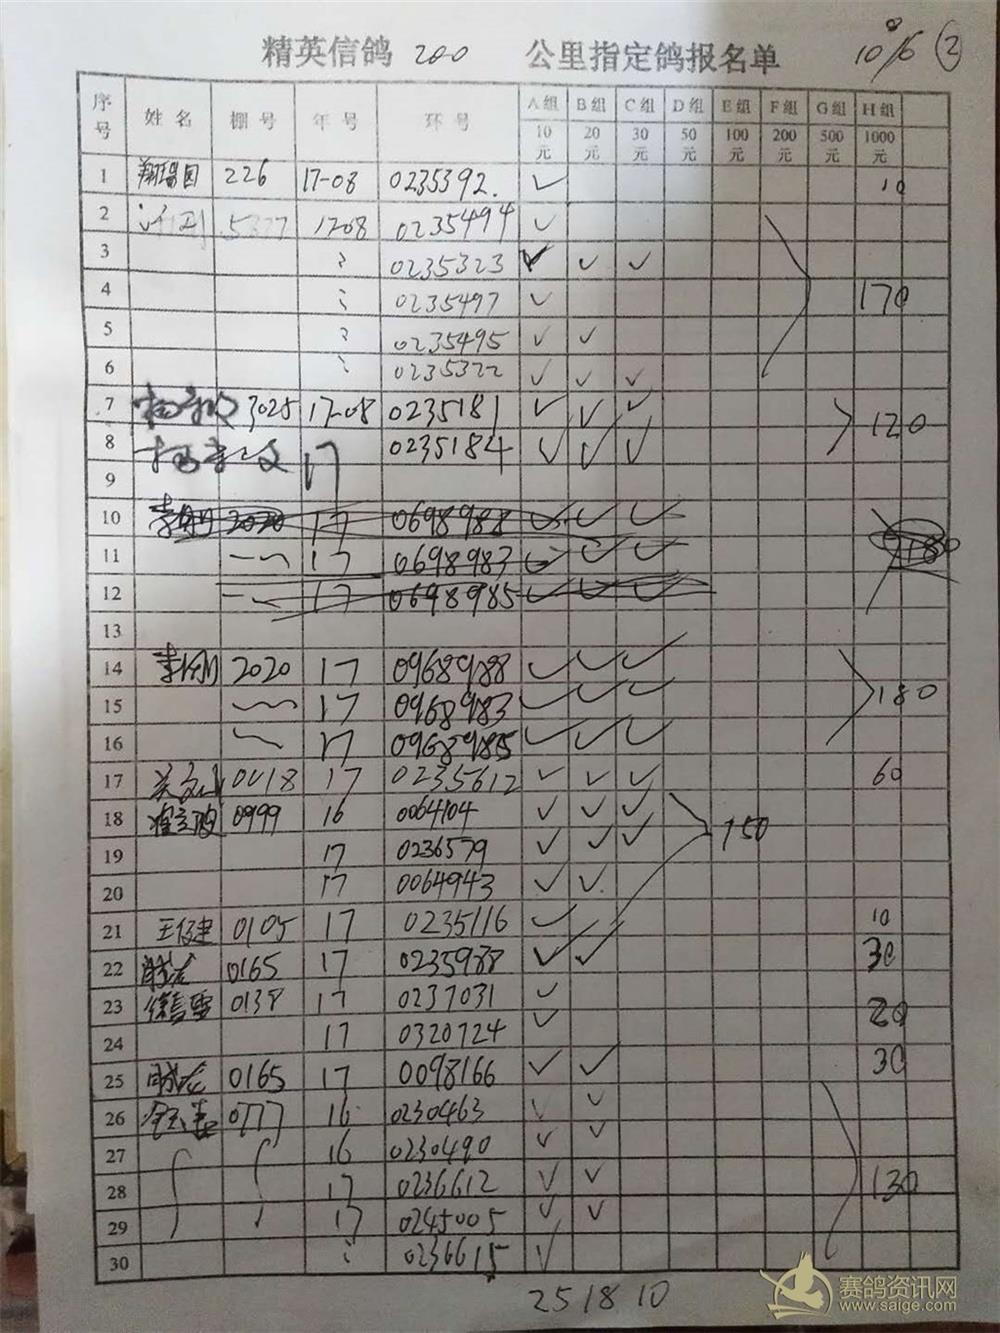 精英信鸽 200 公里指定鸽报名单 10/6 ②
序号 姓名 棚号 年号 环号 A组 B组 C组 D组 E组 F组 G组 H组
10元 20元 30元 50元 100元 200元 500元 1000元
1 226 17-08 0235392. ✓ 10
2 17-08 0235494 ✓
3 0235323 ✓ ✓ ✓
4 0235497 ✓ 170
5 0235495 ✓ ✓
6 0235322 ✓ ✓ ✓
7 3025 17-08 0235181 ✓ ✓ ✓ 120
8 17 0235184 ✓ ✓ ✓
9
10 李刚 2020 17 0698988 ✓ ✓ ✓
11 17 0698983 ✓ ✓ ✓ 180
12 17 0698985 ✓ ✓ ✓
13
14 李刚 2020 17 0968988 ✓ ✓ ✓
15 17 0968983 ✓ ✓ ✓ 180
16 17 0968985 ✓ ✓ ✓
17 0418 17 0235612 ✓ ✓ ✓ 60
18 0999 16 0064104 ✓ ✓ ✓ 150
19 17 0236579 ✓ ✓ ✓
20 17 0064943 ✓ ✓
21 0105 17 0235116 ✓ 10
22 0165 17 0235988 ✓ ✓ 30
23 0138 17 0237031 ✓ 20
24 17 0320724 ✓
25 0165 17 0098166 ✓ ✓ 30
26 0777 16 0230463 ✓ ✓
27 16 0230490 ✓ ✓
28 17 0236612 ✓ ✓ 130
29 17 0245005 ✓ ✓
30 0236615 ✓
25 18 10
赛鸽资讯网
www.saige.com